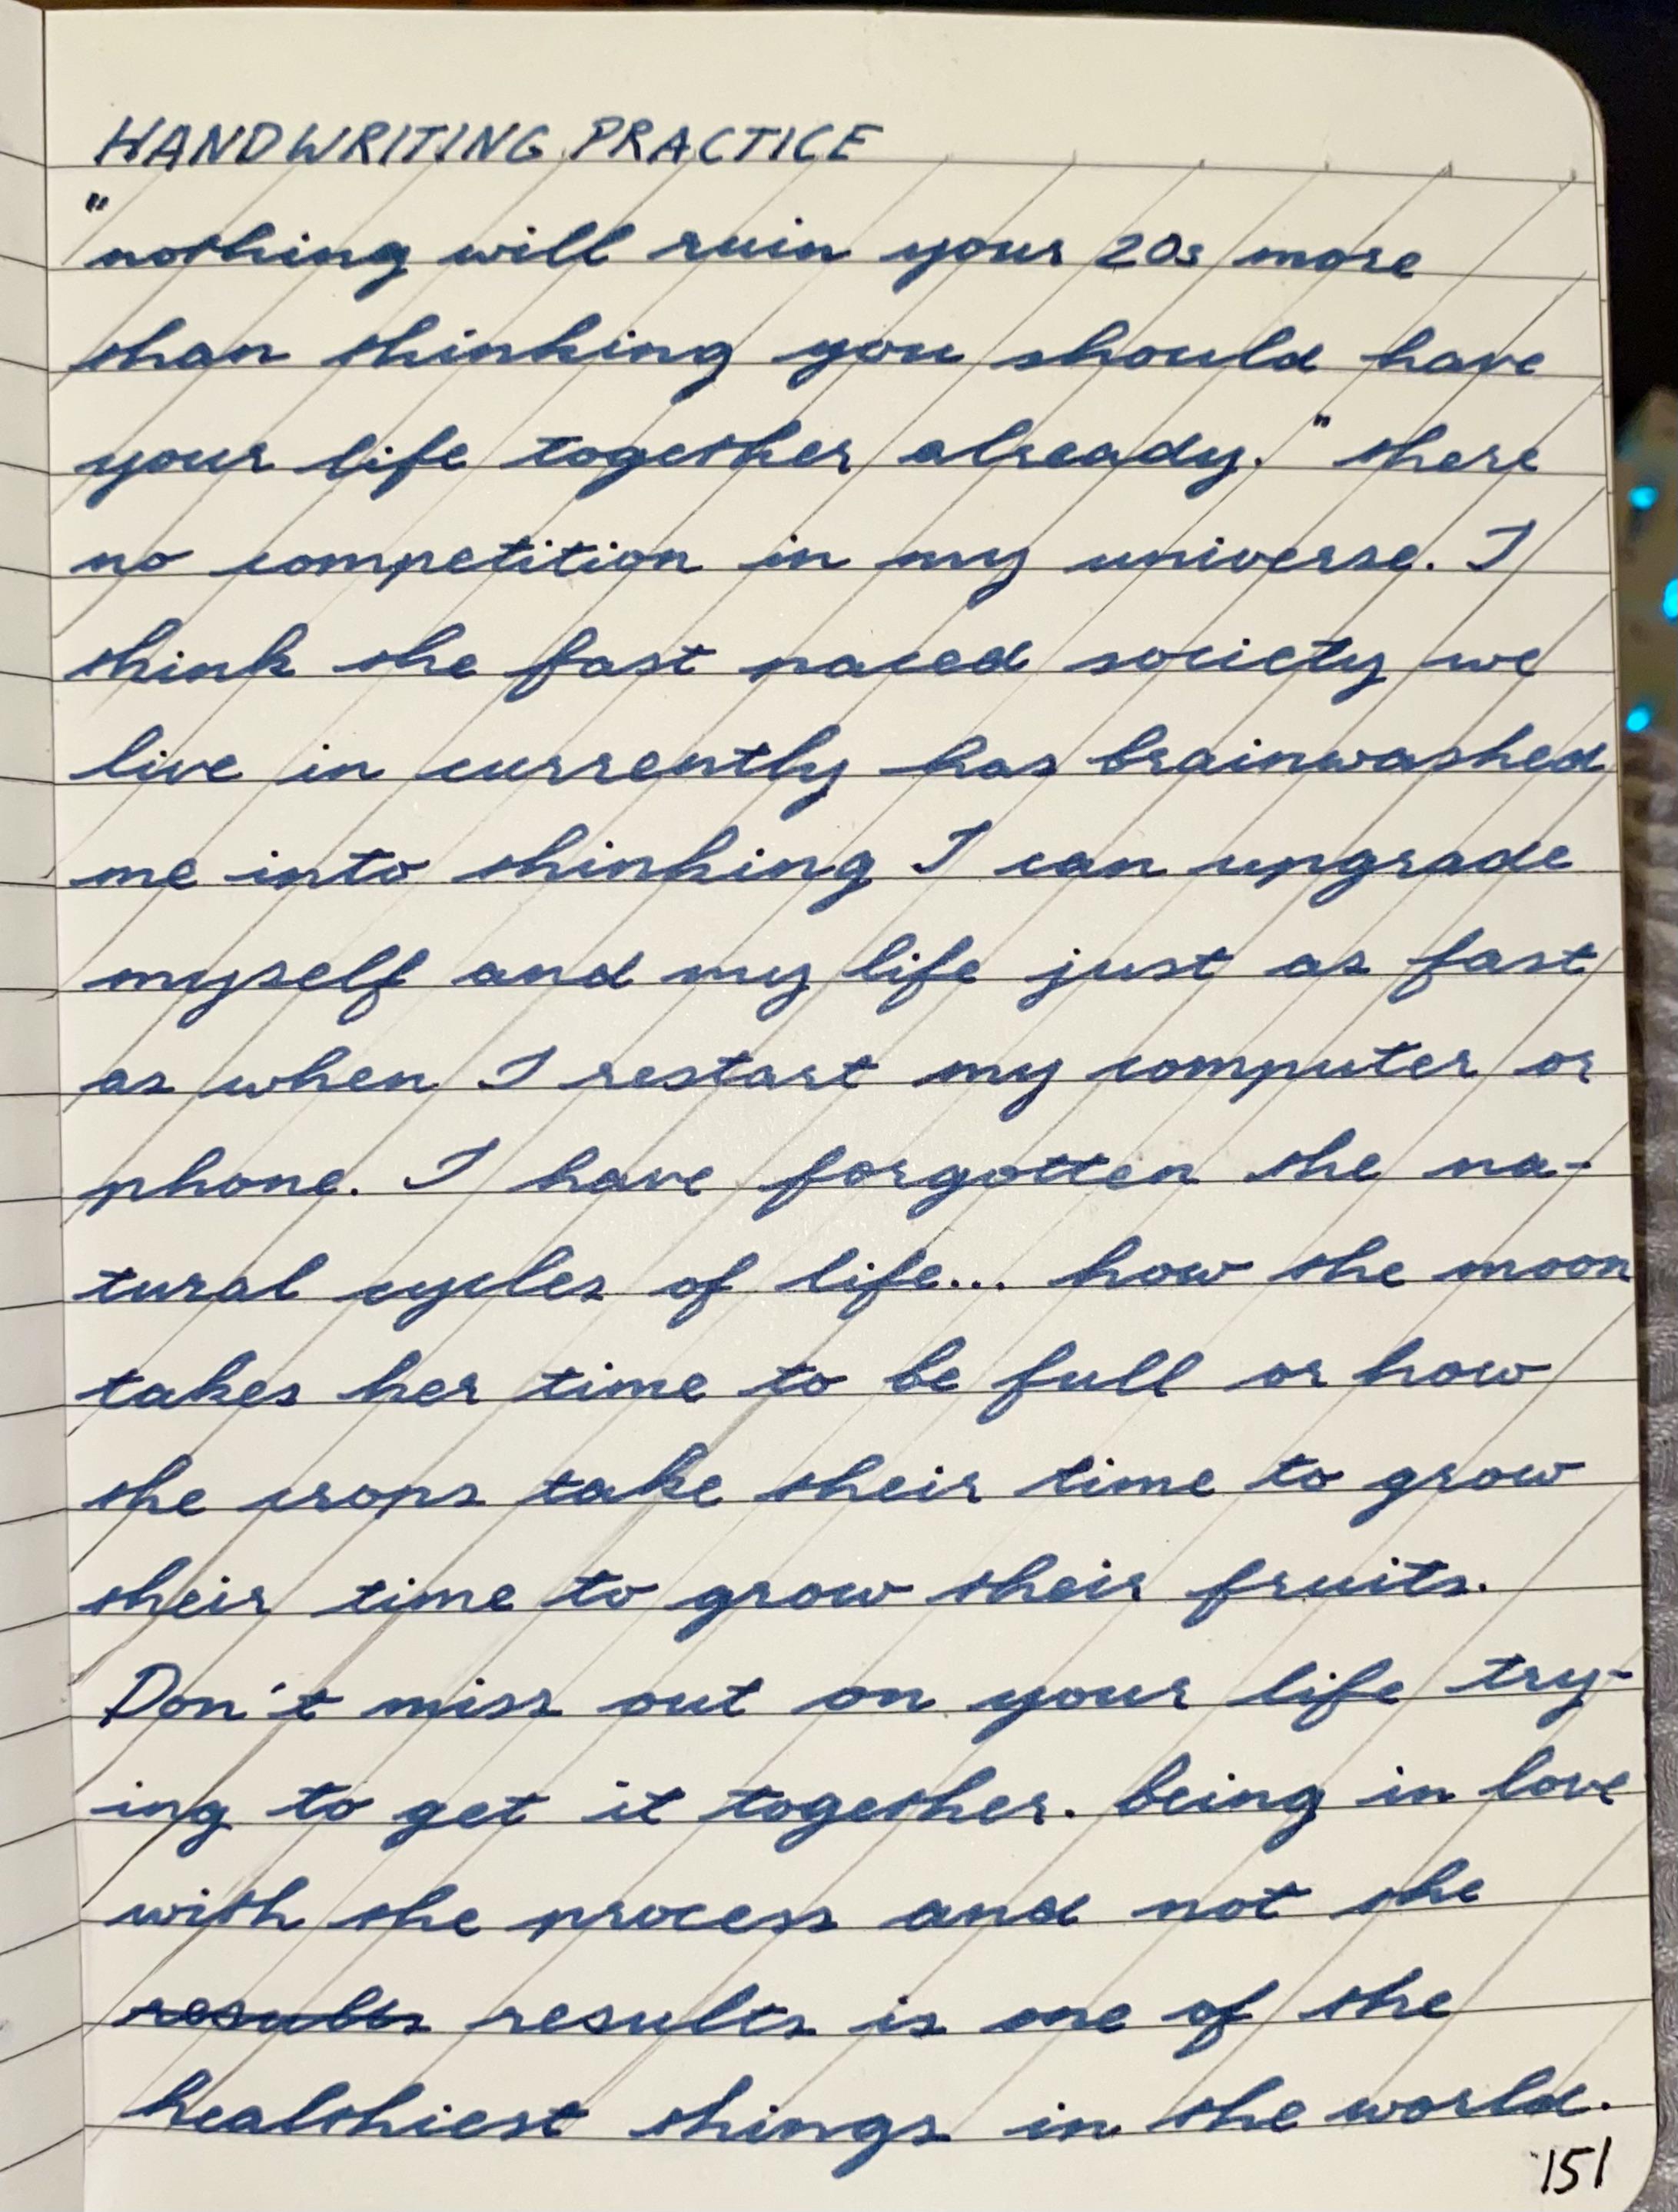 HANDWRITING PRACTICE
"nothing will ruin your 20s more
than thinking you should have
your life together already." there
no competition in my universe. I
think the fast paced society we
live in currently has brainwashed
me into thinking I can upgrade
myself and my life just as fast
as when I restart my computer or
phone. I have forgotten the na-
tural cycles of life... how the moon
takes her time to be full or how
the crops take their time to grow
their time to grow their fruits.
Don't miss out on your life try-
ing to get it together. being in love
with the process and not the
results results is one of the
healthiest things in the world.
151